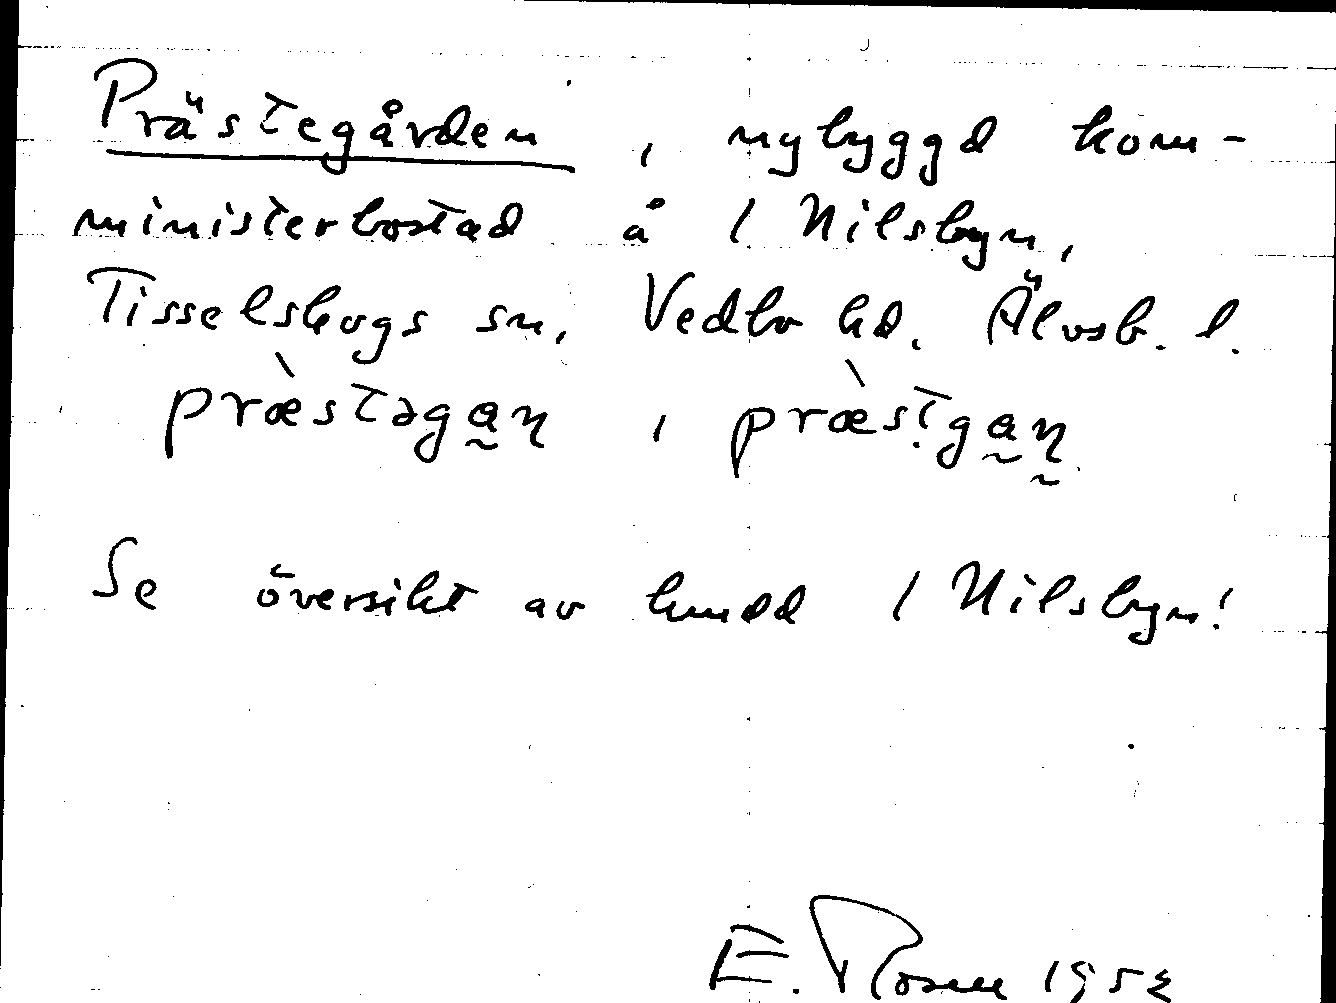 Prästegården, nybyggd kom-
ministerbostad å 1 Nilsbyn,
Tisselskogs sn, Vedbo hd. Älvsb. l.
præ̀stəgan̥, præ̀stgan̥
Se översikt av hmdd 1 Nilsbyn!
E. Rosen 1952